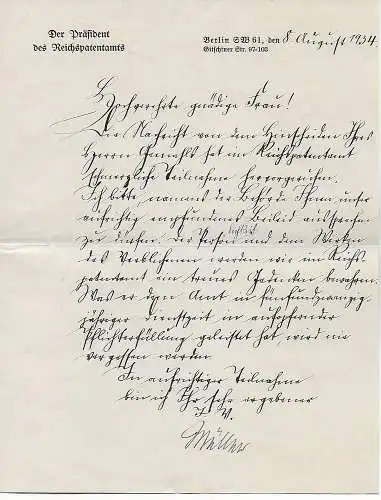 Der Präsident
des Reichspatentamts
Berlin SW 61, den 8. August 1934.
Gitschiner Str. 97-103
Hochverehrte gnädige Frau!
Die Nachricht von dem Hinscheiden Ihres
Herrn Gemahls hat im Reichspatentamt
schmerzliche Teilnahme hervorgerufen.
Ich bitte, namens der Behörde Ihnen unser
aufrichtig empfundenes Beileid aussprechen
zu dürfen. Der Person und dem Wirken
des Verblichenen werden wir im Reichs
patentamt ein treues Gedenken bewahren.
Was er dem Amt in fünfundzwanzig
jähriger Dienstzeit in aufopfernder
Pflichterfüllung geleistet hat wird nie
vergessen werden.
In aufrichtiger Teilnahme
bin ich Ihr sehr ergebener
I. V.
Müller